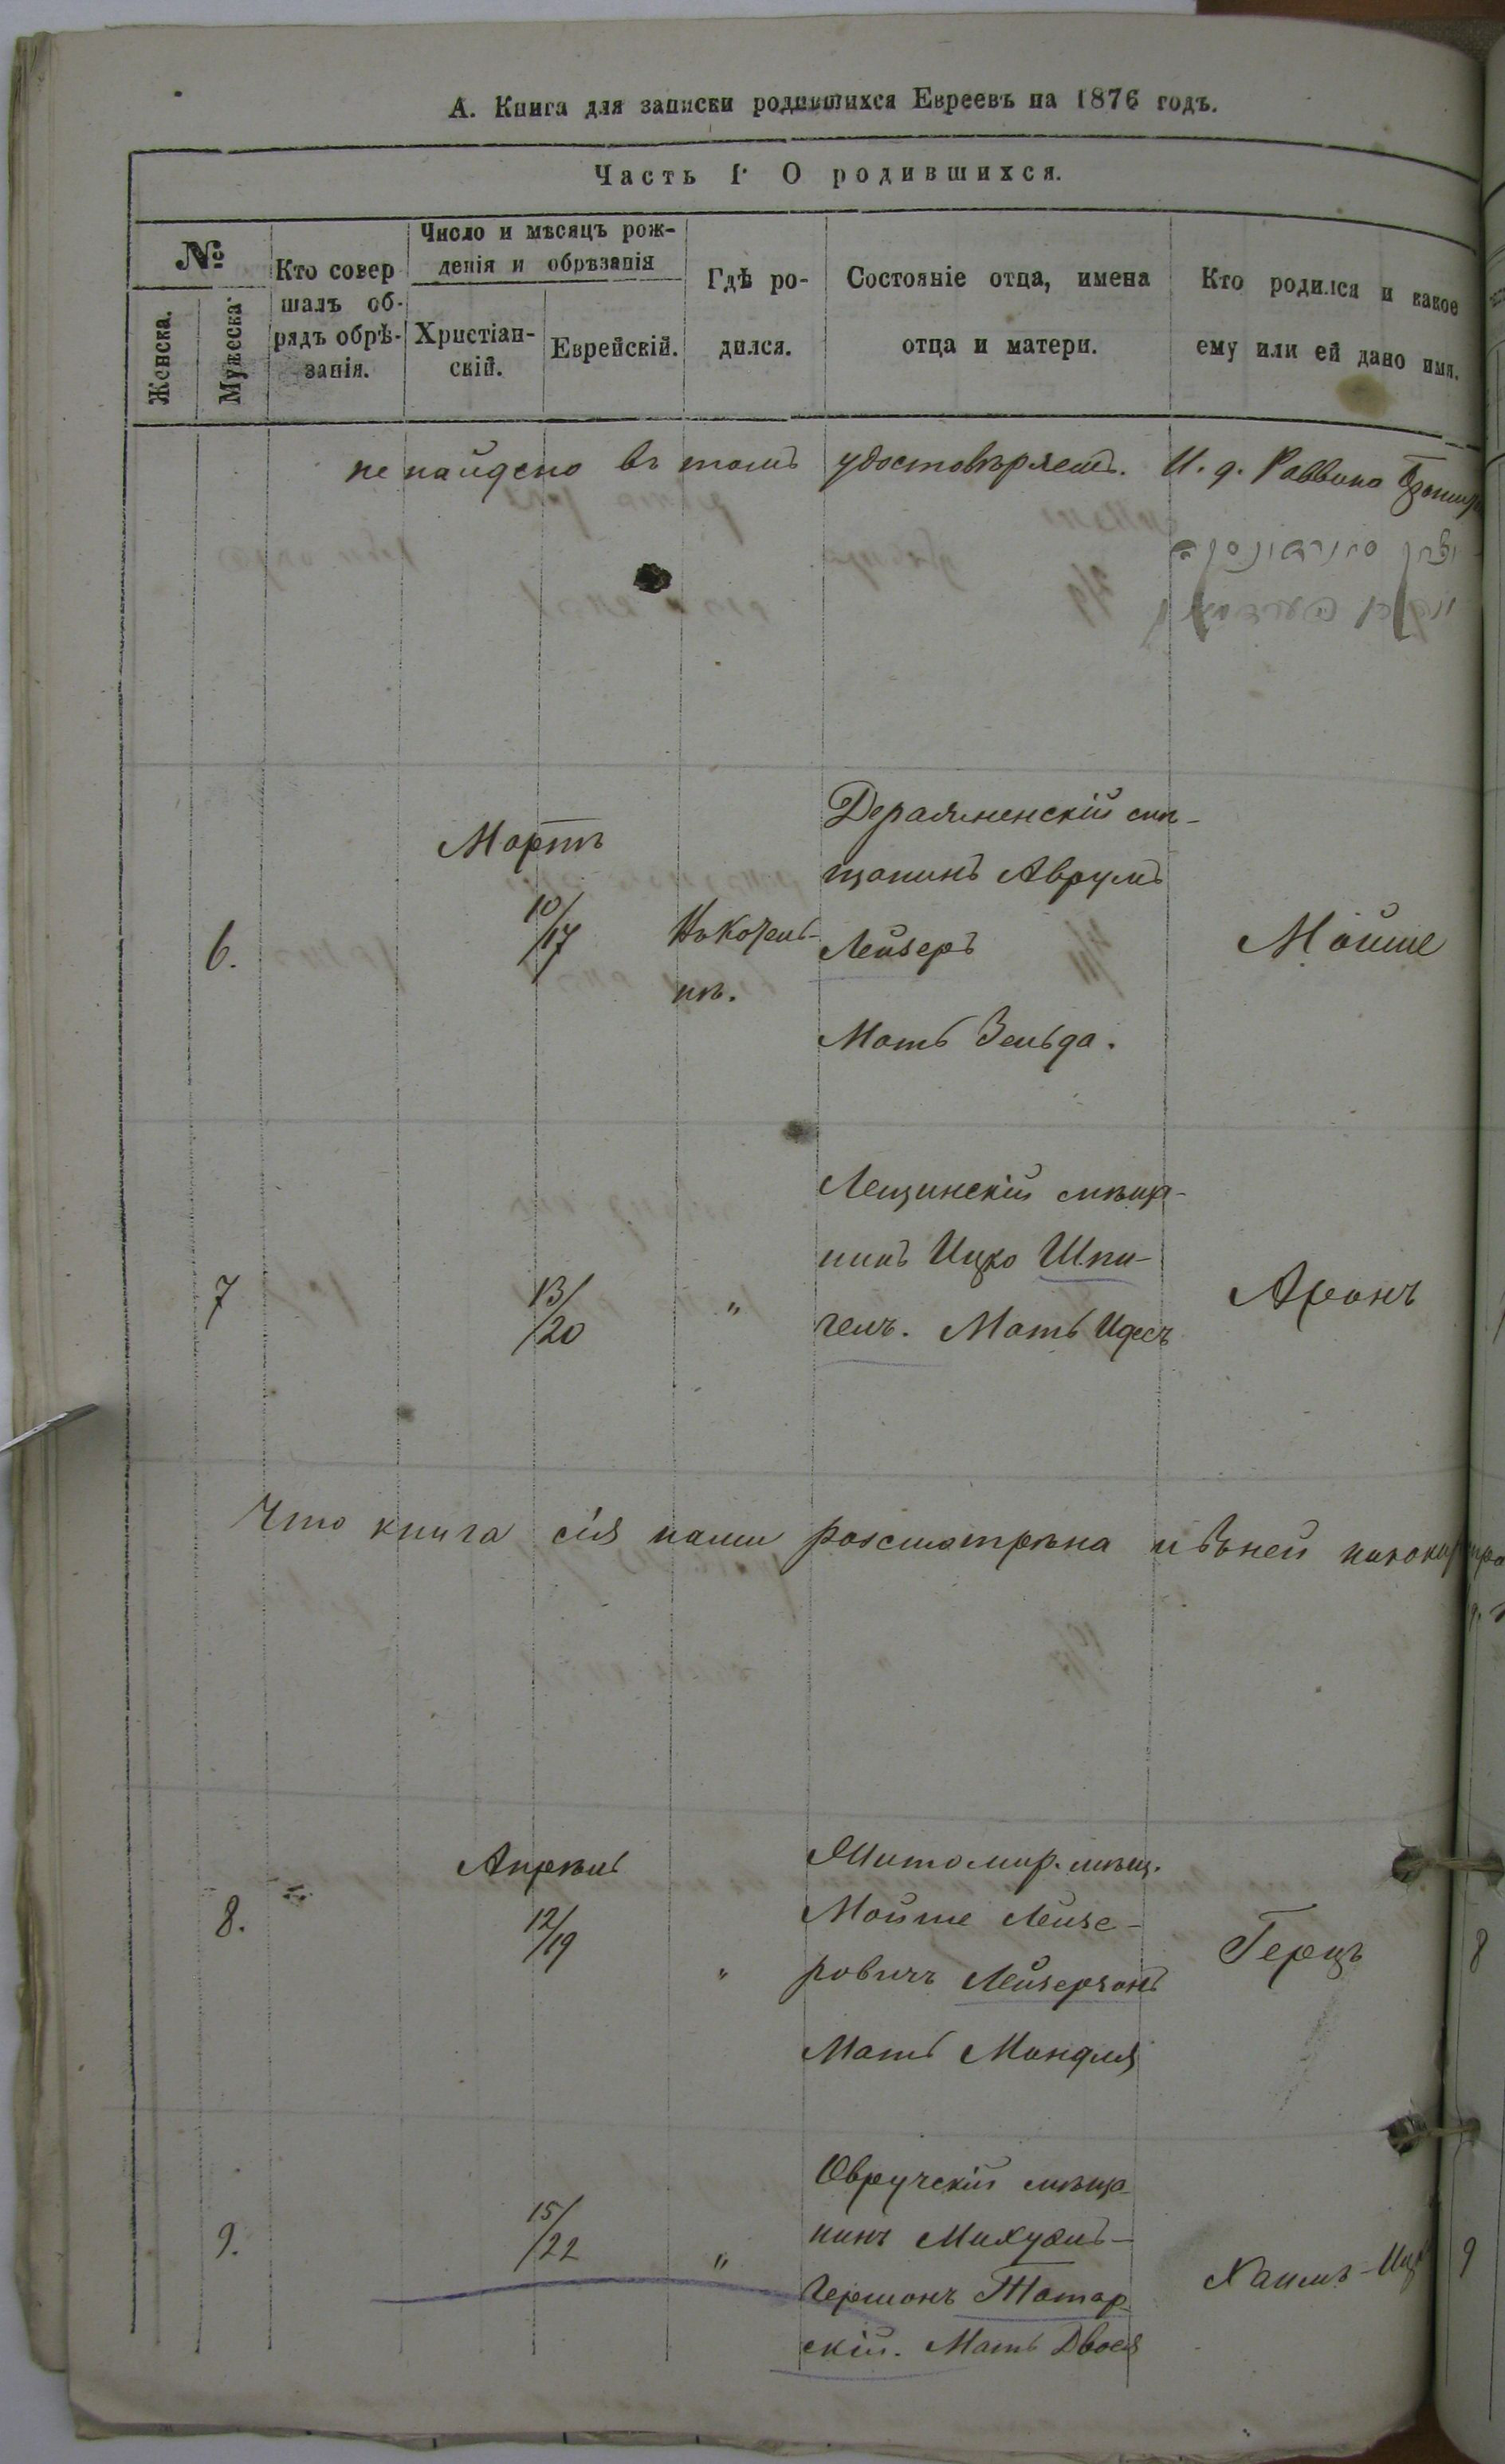 А. Книга для записки родившихся Евреевъ на 1876 годъ.
Часть I. О родившихся.
№
Женска.
Мужеска
Кто совер
шалъ об-
рядъ обрѣ-
занія.
Число и мѣсяцъ рож-
денія и обрѣзанія
Христіан-
скій.
Еврейскій.
Гдѣ ро-
дился.
Состояніе отца, имена
отца и матери.
Кто родился и какое
ему или ей дано имя.
не найдено въ томъ удостовѣряемъ. И. д. Раввина
Мартъ
6.
10/17
Деражненскій мѣ-
щанинъ Аврумъ
Лейзеръ
Мать Зельда.
Мойше
7
13/20
"
Лещинскій мѣща-
нинъ Ицко Шпи-
гель. Мать Идесъ
Аронъ
Что книга сія нами разсмотрѣна и въ ней
Апрѣль
8.
12/19
"
Житомир. мѣщ.
Мойше Лейзе-
ровичъ Лейзерзонъ
Мать Мандля
Герцъ
8
9.
15/22
"
Овручскій мѣща-
нинъ Михуэль-
Гершонъ Татар-
скій. Мать Двося
Хаимъ-
9